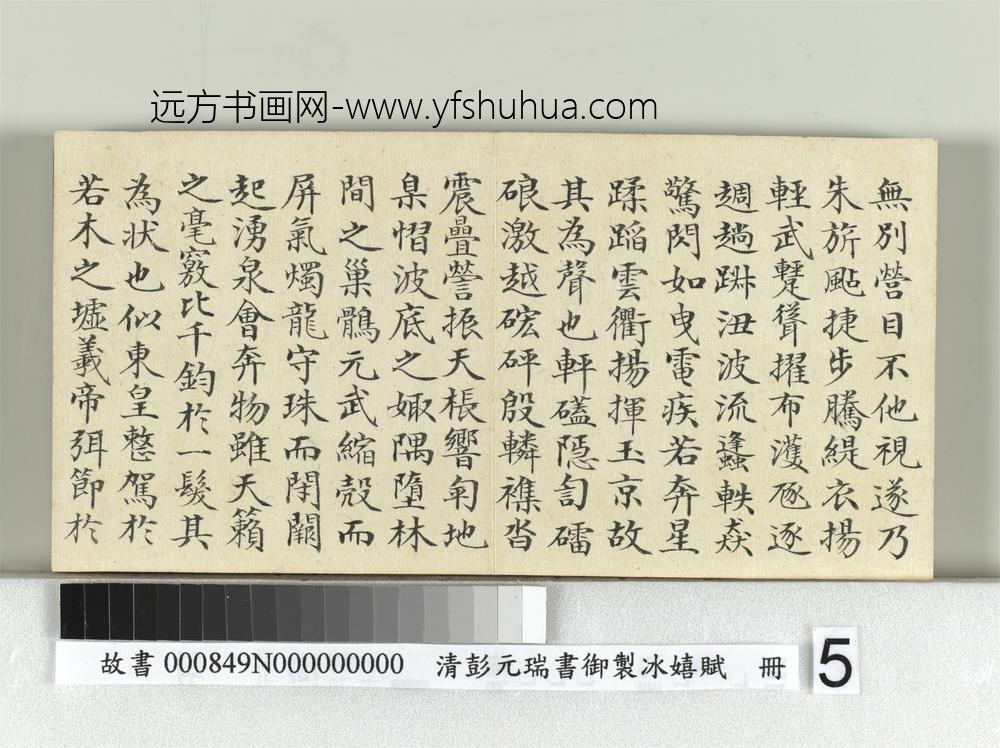 远方书画网-www.yfshuhua.com
無別營目不他視遂乃
朱旂颭捷步騰緹衣揚
輕武韃聳擢布濩豗逐
趙趟跰沑波流蠭軼猋
驚閃如曳電疾若奔星
蹂蹈雲衢揚揮玉京故
其為聲也軯磕隱訇礌
硠激越硡砰殷轔襍沓
震疊謍振天棖響匉地
枲慴波底之娵隅墮林
間之巢鶻元武縮殼而
屏氣燭龍守珠而閉闞
起湧泉會奔物雖天籟
之毫竅比千鈞於一髮其
為狀也似東皇整駕於
若木之墟羲帝弭節於
故書 000849N000000000 清彭元瑞書御製冰嬉賦 冊
5